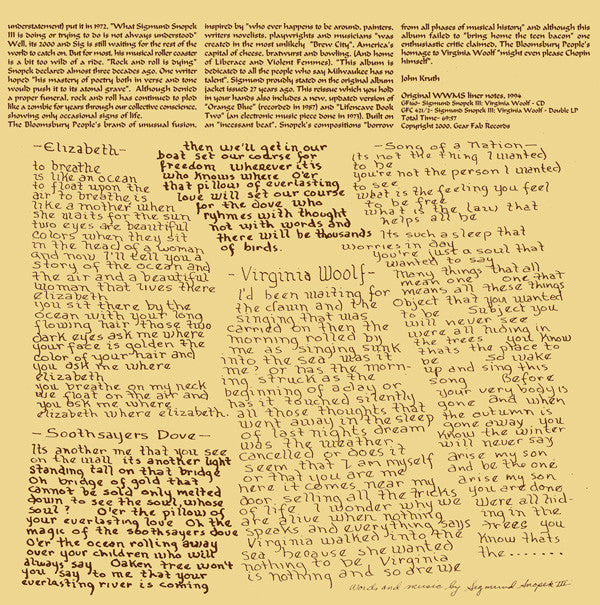 understatement) put it in 1972. "What Sigmund Snopek
III is doing or trying to do is not always understood"
Well, its 2000 and Sig is still waiting for the rest of the
world to catch on. But for most, his musical roller coaster
is a bit too wild of a ride. "Rock and roll is dying"
Snopek declared almost three decades ago. One writer
hoped "his mastery of poetry both in verse and tone
would push it to its atonal grave". Although denied
a proper funeral, rock and roll has continued to plod
like a zombie for years through our collective conscience,
showing only occasional signs of life.
The Bloomsbury People's brand of unusual fusion,
inspired by "who ever happens to be around, painters,
writers novelists, playwrights and musicians "was
created in the most unlikely "Brew City", America's
capital of cheese, bratwurst and bowling. (And home
of Liberace and Violent Femmes). "This album is
dedicated to all the people who say Milwaukee has no
talent". Sigmund proudly stated on the original album
jacket issued 27 years ago. This reissue which you hold
in your hands also includes a new, updated version of
"Orange Blue" (recorded in 1987) and "Lifencave Book
Two" (an electronic music piece done in 1973). Built on
an "incessant beat", Snopek's compositions "borrow
from all phases of musical history" and although this
album failed to "bring home the teen bacon" one
enthusiastic critic claimed, The Bloomsbury People's
homage to Virginia Woolf "might even please Chopin
himself".
John Kruth
Original WWMS liner notes, 1994
GF160- Sigmund Snopek III: Virginia Woolf - CD
GFC 421/2- Sigmund Snopek III: Virginia Woolf - Double LP
Total Time- 69:57
Copyright 2000, Gear Fab Records
-Elizabeth-
to breathe
is like an ocean
to float upon the
air to breathe is
like a mother when
she waits for the sun
two eyes are beautiful
colors when they sit
in the head of a woman
and now I'll tell you a
story of the ocean and
the air and a beautiful
woman that lives there
elizabeth
you sit there by the
ocean with your long
flowing hair those two
dark eyes ask me where
your face is golden the
color of your hair and
you ask me where
elizabeth
you breathe on my neck
we float on the air and
you ask me where
elizabeth where elizabeth.
-Soothsayers Dove-
Its another me that you see
on the wall its another light
standing tall on that bridge
Oh bridge of gold that
cannot be sold only melted
down to see the soul, whose
soul? O'er the pillow of
your everlasting love Oh the
magic of the soothsayers dove
O'er the ocean rolling away
over your children who will
always say Oaken tree won't
you say to me that your
everlasting river is coming
then we'll get in our
boat set our course for
freedom wherever it is
who knows where o'er
that pillow of everlasting
love will set our course
for the dove who
ryhmes with thought
not with words and
there will be thousands
of birds.
-Virginia Woolf-
I'd been waiting for
the clawn and the
singing that was
carried on then the
morning rolled by
me as singing sunk
into the sea was it
me? or has the morn-
ing struck as the
beginning of a day or
has it touched silently
all those thoughts that
went away in the sleep
of last nights dream
was the weather,
cancelled or does it
seem that I am myself
or that you are me
here it comes near my
door, selling all the tricks
of life, I wonder why we
are alive when nothing
speaks and everything says
Virginia walked into the
sea because she wanted
nothing to be Virginia
is nothing and so are we
-Song of a Nation-
(its not the thing I wanted)
to be
you're not the person I wanted
to see
what is the feeling you feel
to be free
what is the law that
helps all be
Its such a sleep that
worries in day
you're just a soul that
wanted to say
Many things that all
mean one one that
means all these things
Object that you wanted
to be Subject you
will never see
were all hiding in
the trees you know
thats the place to
be So wake
up and sing this
song Before
your very body is
gone and when
the autumn is
gone away, you
Know the winter
will never say
arise my son
and be the one
arise my son
you are done
were all hid-
ing in the
trees you
Know thats
the.......
Words and music by Sigmund Snopek III